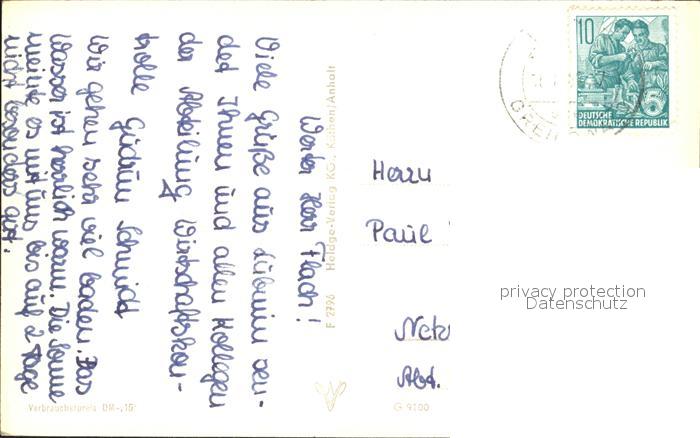 Werter Herr Flach!
Viele Grüße aus Lubmin sen-
det Ihnen und allen Kollegen
der Abteilung Wirtschaftskon-
trolle Gudrun Schmidt
Wir gehen sehr viel baden. Das
Wasser ist herrlich warm. Die Sonne
meinte es mit uns bis auf 2 Tage
nicht besonders gut.
Verbraucherpreis DM -,15
F 2796 Heldge-Verlag KG., Köthen/Anhalt
10
5
DEUTSCHE
DEMOKRATISCHE REPUBLIK
Herrn
Paul
Abt.
G 9100
privacy protection
Datenschutz